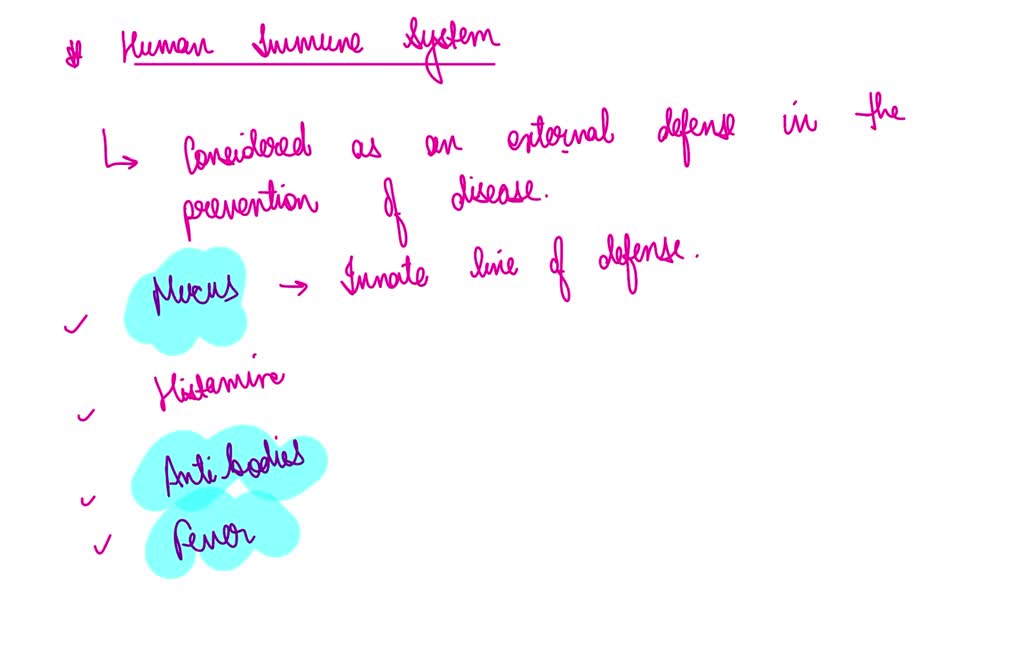 # Human Immune System
↳ Considered as an external defense in the
prevention of disease.
✓ Mucus → Innate line of defense.
✓ Histamine
✓ Antibodies
✓ Fever